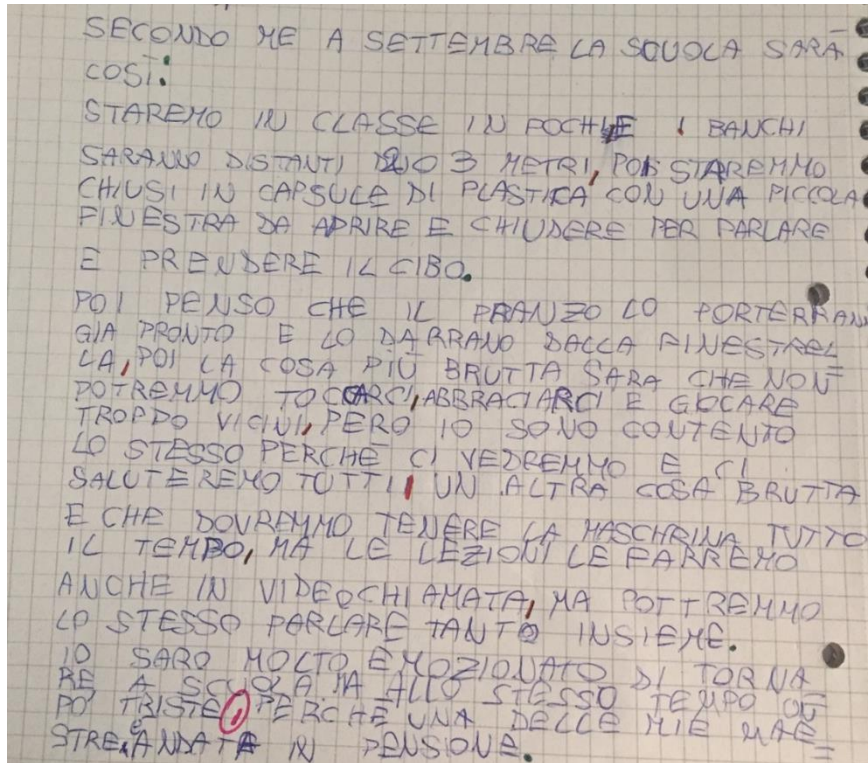 SECONDO ME A SETTEMBRE LA SCUOLA SARÀ
COSÌ:
STAREMO IN CLASSE IN POCHI E I BANCHI
SARANNO DISTANTI 2 O 3 METRI, POI STAREMMO
CHIUSI IN CAPSULE DI PLASTICA CON UNA PICCOLA
FINESTRA DA APRIRE E CHIUDERE PER PARLARE
E PRENDERE IL CIBO.
POI PENSO CHE IL PRANZO LO PORTERRAN
GIA PRONTO E LO DARRANO DALLA FINESTREL
LA, POI LA COSA PIÙ BRUTTA SARA CHE NON
POTREMMO TOCCARCI, ABBRACIARCI E GIOCARE
TROPPO VICINI, PERO IO SONO CONTENTO
LO STESSO PERCHÈ CI VEDREMMO E CI
SALUTEREMO TUTTI, UN ALTRA COSA BRUTTA
E CHE DOVREMMO TENERE LA MASCHRINA TUTTO
IL TEMPO, MA LE LEZIONI LE FARREMO
ANCHE IN VIDEOCHIAMATA, MA POTTREMMO
LO STESSO PARLARE TANTO INSIEME.
IO SARO MOLTO EMOZIONATO DI TORNA
RE A SCUOLA MA ALLO STESSO TEMPO UN
PO' TRISTE, PERCHÈ UNA DELLE MIE MAE=
STRE È ANDATA IN PENSIONE.